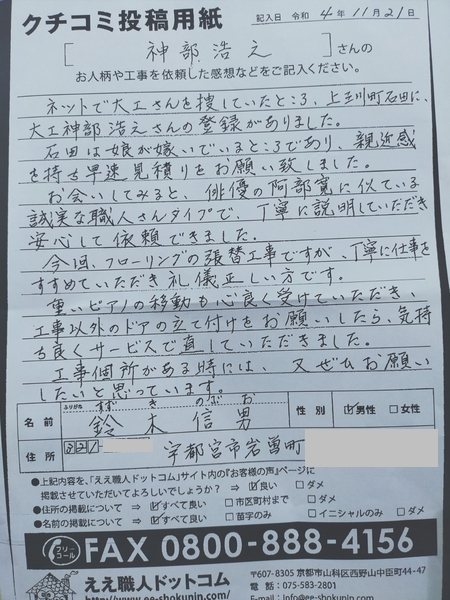 クチコミ投稿用紙
記入日 令和 4 年 11 月 21 日
[ 神部浩之 ] さんの
お人柄や工事を依頼した感想などをご記入ください。
ネットで大工さんを捜していたところ、上三川町石田に、
大工神部浩之さんの登録がありました。
石田は娘が嫁いでいるところであり、親近感
を持ち早速見積りをお願い致しました。
お会いしてみると、俳優の阿部寛に似ている
誠実な職人さんタイプで、丁寧に説明していただき
安心して依頼できました。
今回、フローリングの張替工事ですが、丁寧に仕事を
すすめていただき礼儀正しい方です。
重いピアノの移動も心良く受けていただき、
工事以外のドアの立て付けをお願いしたら、気持
ち良くサービスで直していただきました。
工事個所がある時には、又ぜひお願い
したいと思っています。
ふりがな すず き のぶ お
名前 鈴木信男 性別 ☑男性 □女性
住所 321- 宇都宮市岩曽町
●上記内容を、「ええ職人ドットコム」サイト内の『お客様の声』ページに
掲載させていただいてよろしいでしょうか? ⇒ ☑良い □ダメ
●住所の掲載について ⇒ ☑すべて良い □市区町村まで □ダメ
●名前の掲載について ⇒ ☑すべて良い □苗字のみ □イニシャルのみ □ダメ
フリーコール FAX 0800-888-4156
ええ職人ドットコム
http://www.ee-shokunin.com/
〒607-8305 京都市山科区西野山中臣町44-47
電話: 075-583-2801
E-mail : Info@ee-shokunin.com